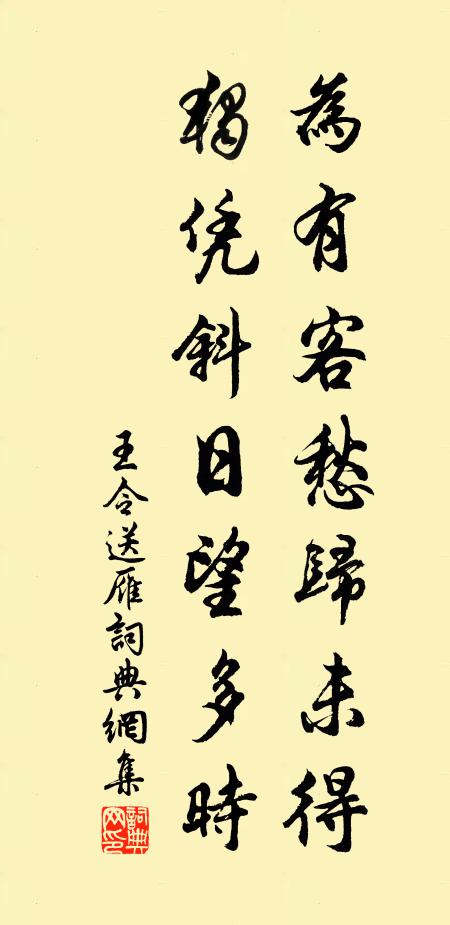 為有客愁歸未得
獨凭斜日望多時
王令送雁詞典網集
詞典網印